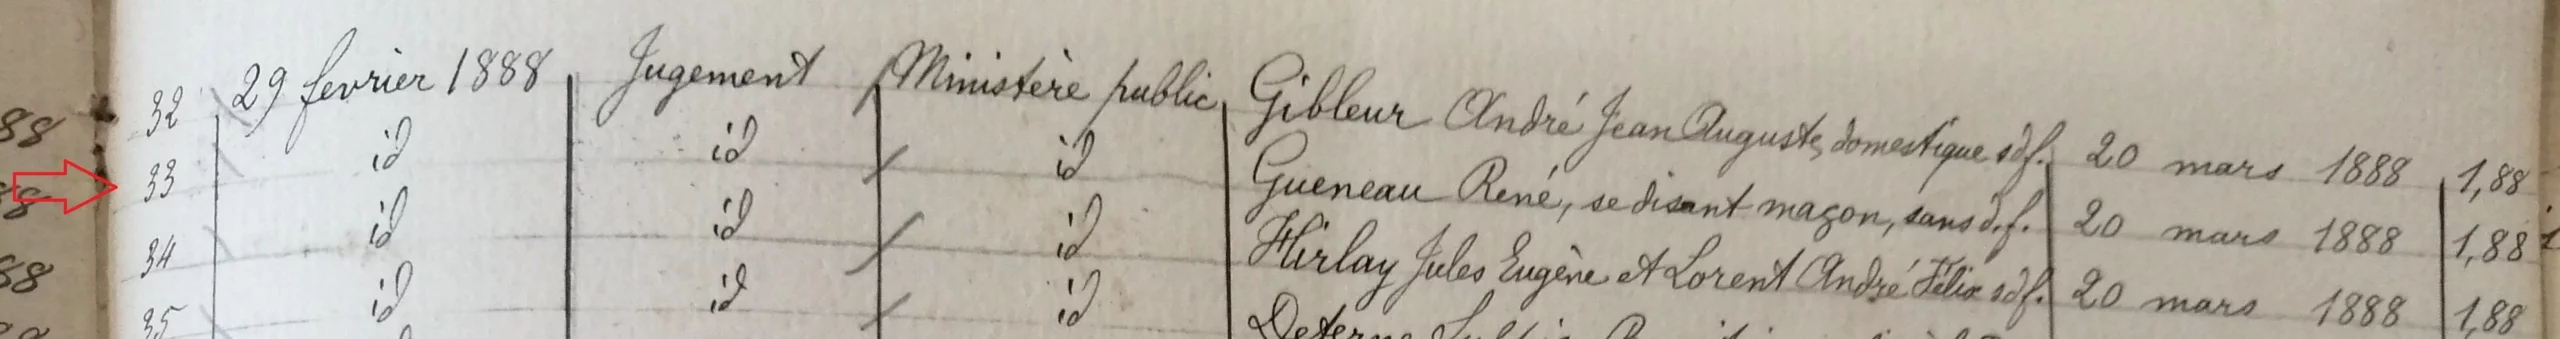 32 29 fevrier 1888 Jugement Ministère public Gibleur André Jean Auguste, domestique sdf. 20 mars 1888 1,88
33 id id id Gueneau René, se disant maçon, sans d.f. 20 mars 1888 1,88
34 id id id Hirlay Jules Eugène et Lorent André Félix sdf. 20 mars 1888 1,88
35 id id id
88
88
88